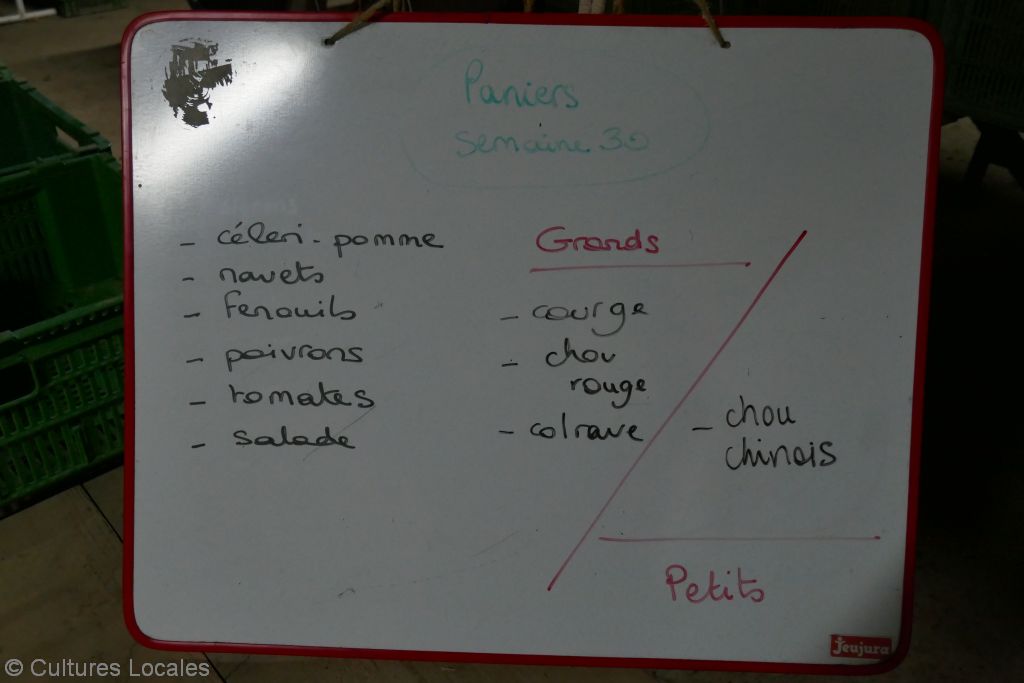 Paniers
semaine 30
- céleri-pomme
- navets
- fenouils
- poivrons
- tomates
- salade
Grands
- courge
- chou
rouge
- colrave
- chou
chinois
Petits
Jeujura
© Cultures Locales